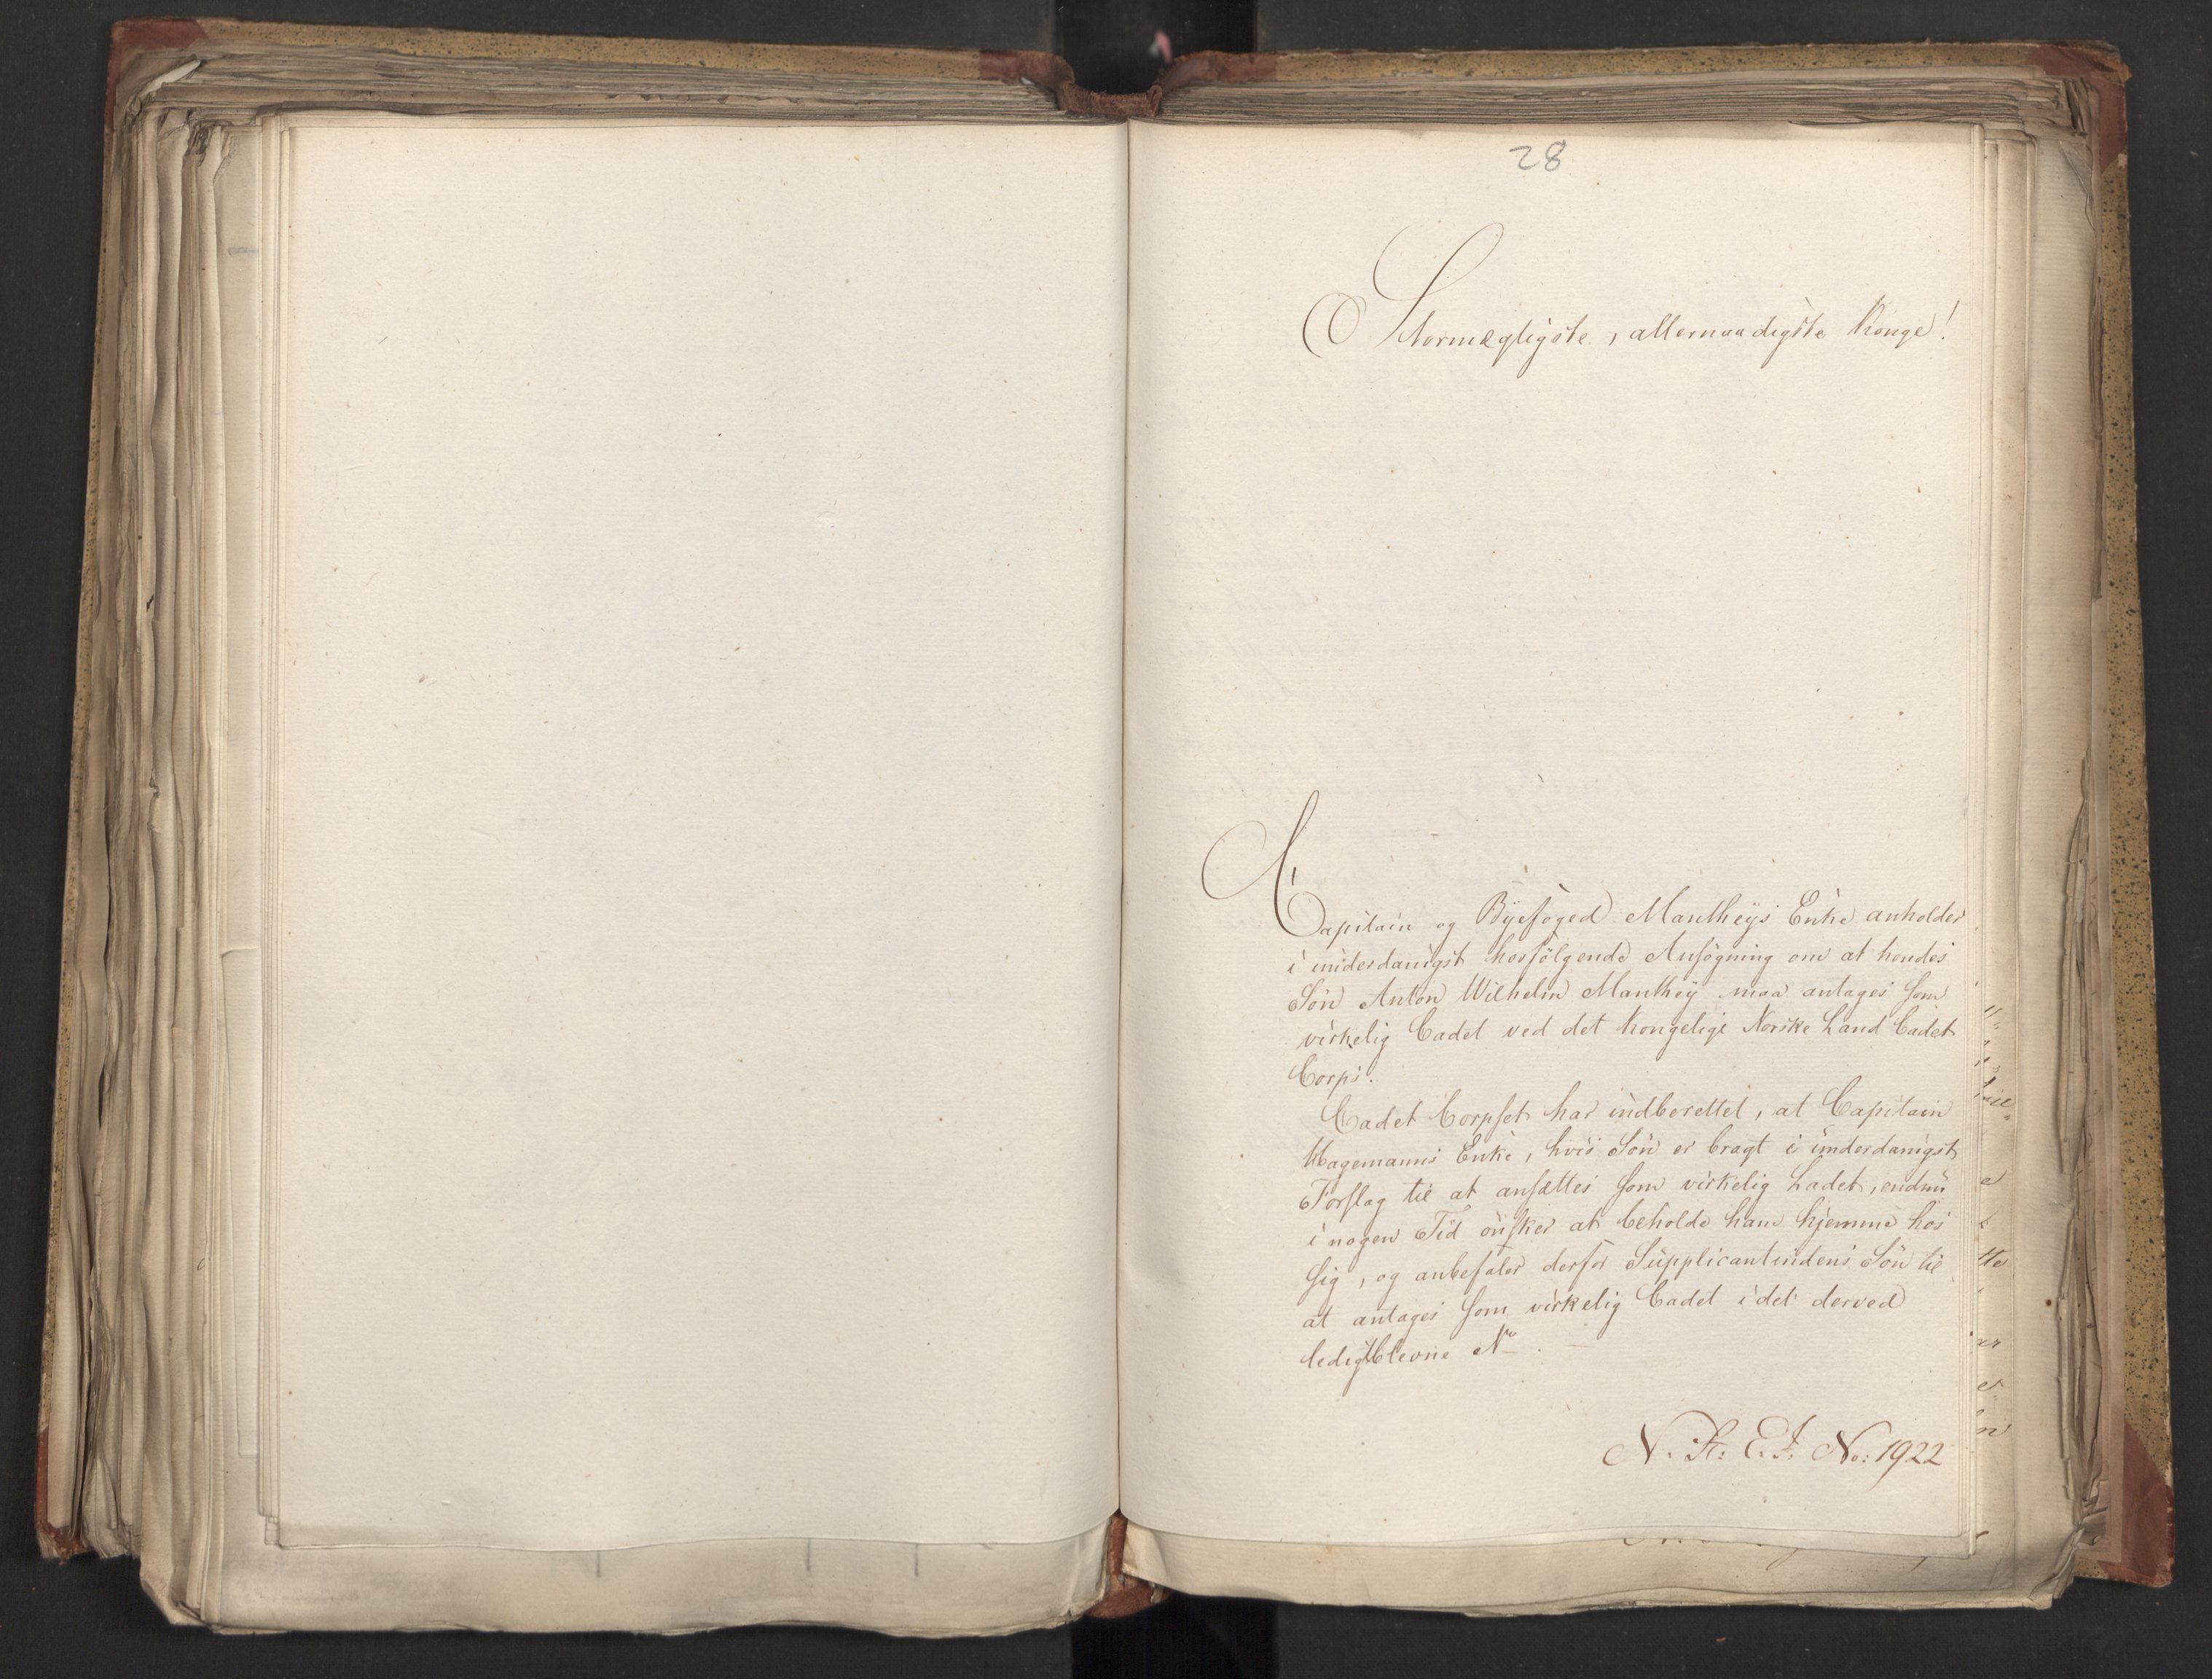 28
Stormægtigste, allernaadigste Konge!
Capitain og Byefoged Mantheys Enke anholder
i underdanigst hosfølgende Ansøgning om at hendes
Søn Anton Wilhelm Manthey maa antages som
virkelig Cadet ved det Kongelige Norske Land Cadet
Corps.
Cadet Corpset har indberettet, at Capitain
Hagemanns Enke, hvis Søn er bragt i underdanigst
Forslag til at ansættes som virkelig Cadet, endnu
i nogen Tid ønsker at beholde ham hjemme hos
sig, og anbefaler derfor Supplicantindens Søn til
at antages som virkelig Cadet i det derved
ledigtblevne No.
N. K: E. J: No: 1922